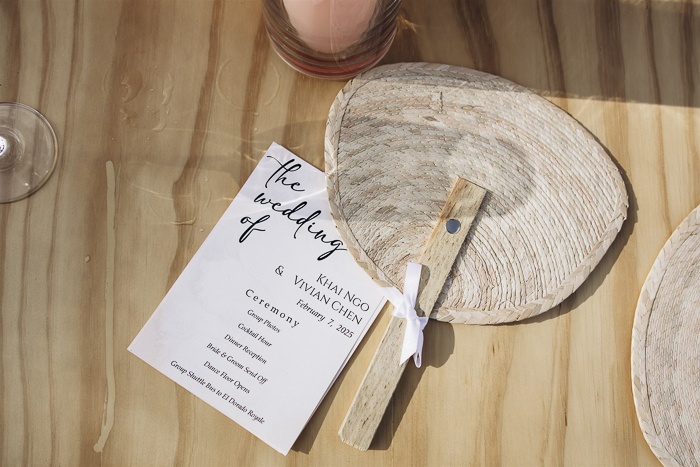 the
wedding
of
KHAI NGO
&
VIVIAN CHEN
February 7, 2025
Ceremony
Group Photos
Cocktail Hour
Dinner Reception
Bride & Groom Send Off
Dance Floor Opens
Group Shuttle Bus to El Dorado Royale